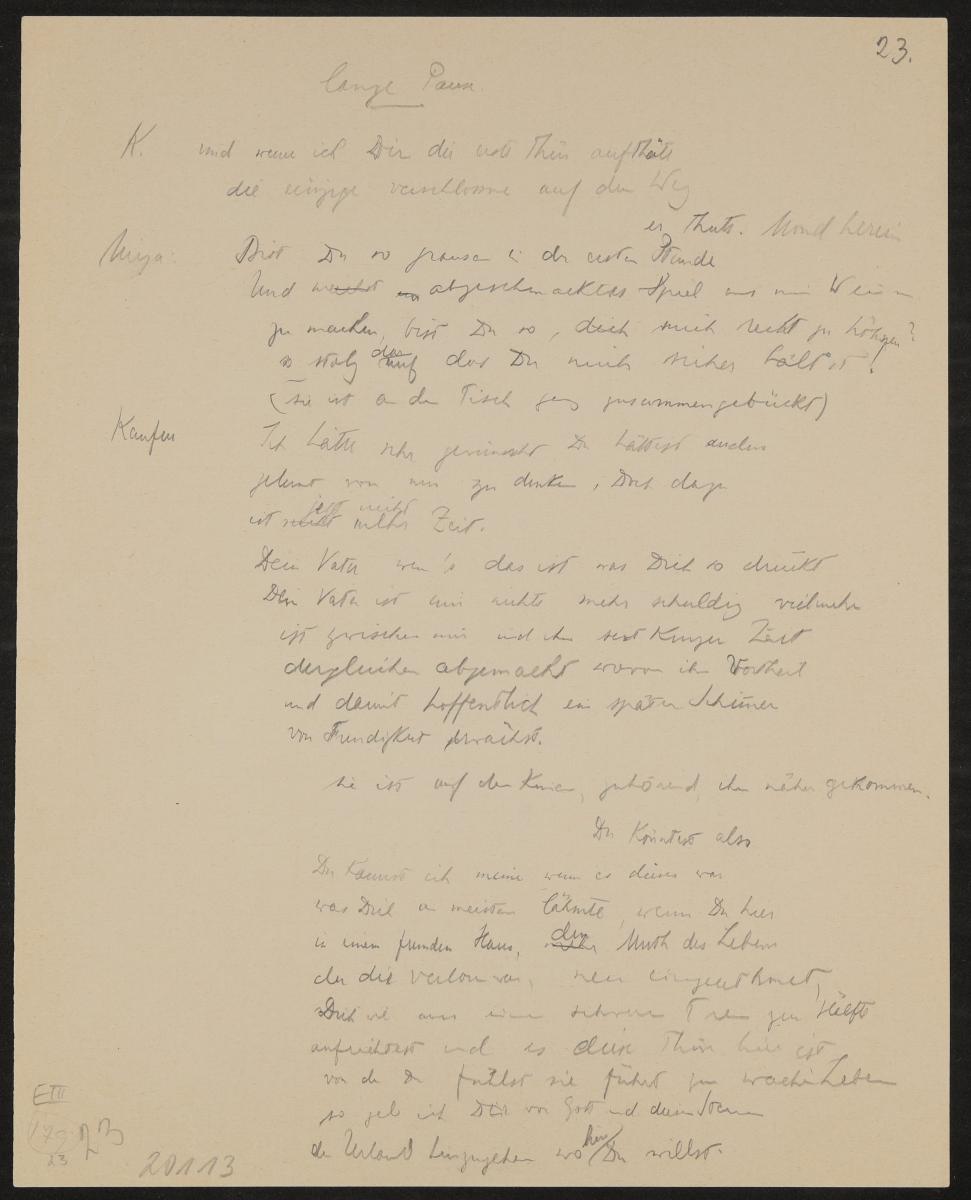 23.
lange Pause.
K. und wenn ich Dir die erste Thür aufthäte
die einzige verschlossne auf dem Weg
er thuts. Mond herein
Mizza: Bist Du so grausam in der ersten Stunde
Und ein abgeschmacktes Spiel aus mein Weinen
zu machen, bist Du so, dich mich recht zu höhnen?
so stolz darauf das Du mich sicher hältst!
(sie ist an den Tisch ganz zusammengebückt)
Kaufm Ich hätte sehr gewünscht Du hättest anders
gelernt von mir zu denken, Doch dazu
ist jetzt nicht mehr Zeit.
Dein Vater wenn's das ist was Dich so drückt
Dein Vater ist mir nichts mehr schuldig vielmehr
ist zwischen mir und ihm seit kurzer Zeit
dergleichen abgemacht wovon ihm Vortheil
und damit hoffentlich ein später Schimmer
von Freudigkeit erwächst.
sie ist auf den Knien, zuhörend, ihm näher gekommen.
Du könntest also
Du kannst ich meine wenn es dieses war
was Dich am meisten lähmte, wenn Du hier
in einem fremden Haus, den Muth des Lebens
der dir verloren war, neu eingeathmet,
Dich wie aus einem schweren Traum zur Hälfte
aufrichtest und es diese Thür hier ist
von der Du fühlst sie führt zum wachen Leben
so geb ich Dir vor Gott und diesen Sternen
den Urlaub hinzugehen wohin Du willst.
E III
23
23
20113